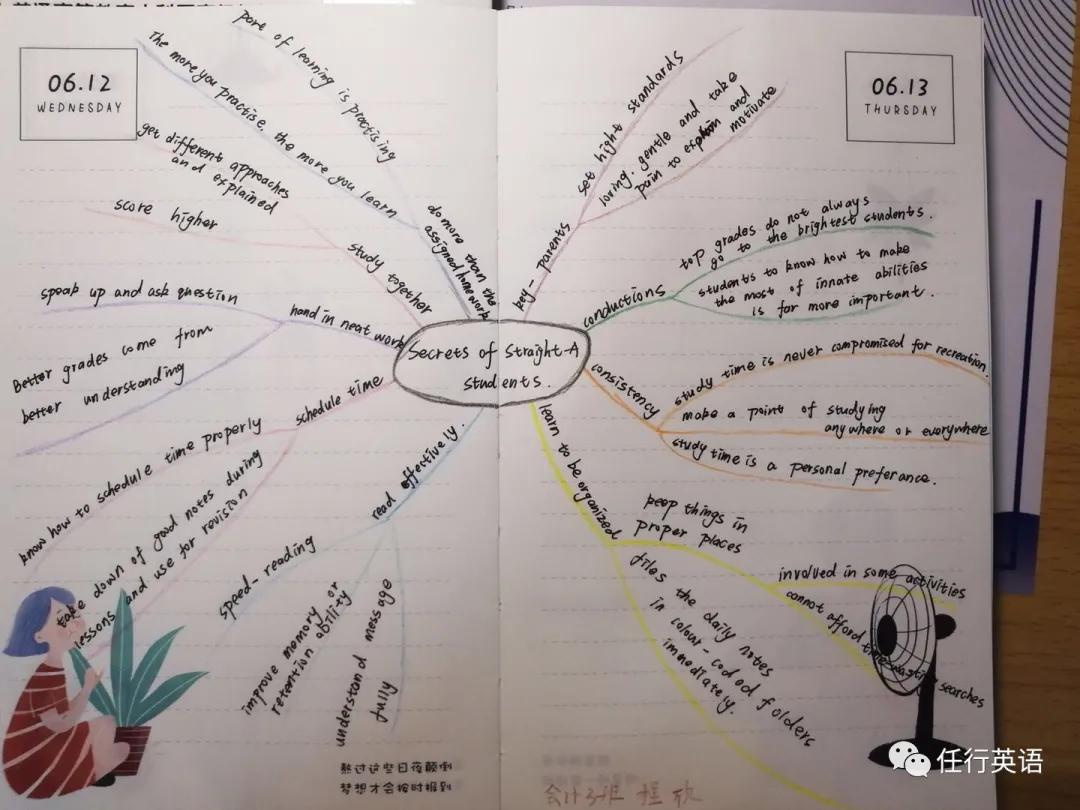 06.12
WEDNESDAY
part of learning is practising
The more you practise, the more you learn
do more than the
assigned homework
get different approaches
and explained
score higher
study together
speak up and ask question
better grades come from
better understanding
hand in neat work
schedule time
know how to schedule time properly
take down of good notes during
lessons and use for revision
read effectively.
speed-reading
improve memory or
retention ability
understand message
fully
熬过这些日夜颠倒
梦想才会按时报到
Secrets of Straight-A
students.
06.13
THURSDAY
key-parents
set hight standards
loving. gentle and take
pain to explain and
motivate
conductions
top grades do not always
go to the brightest students.
students to know how to make
the most of innate abilities
is far more important.
consistency
study time is never compromised for recreation.
make a point of studying
anywhere or everywhere
study time is a personal preferance.
learn to be organized
keep things in
proper places
involved in some activities
cannot afford time-wasting searches
files the daily notes
in colour-coded folders
immediately.
会计3班
任行英语